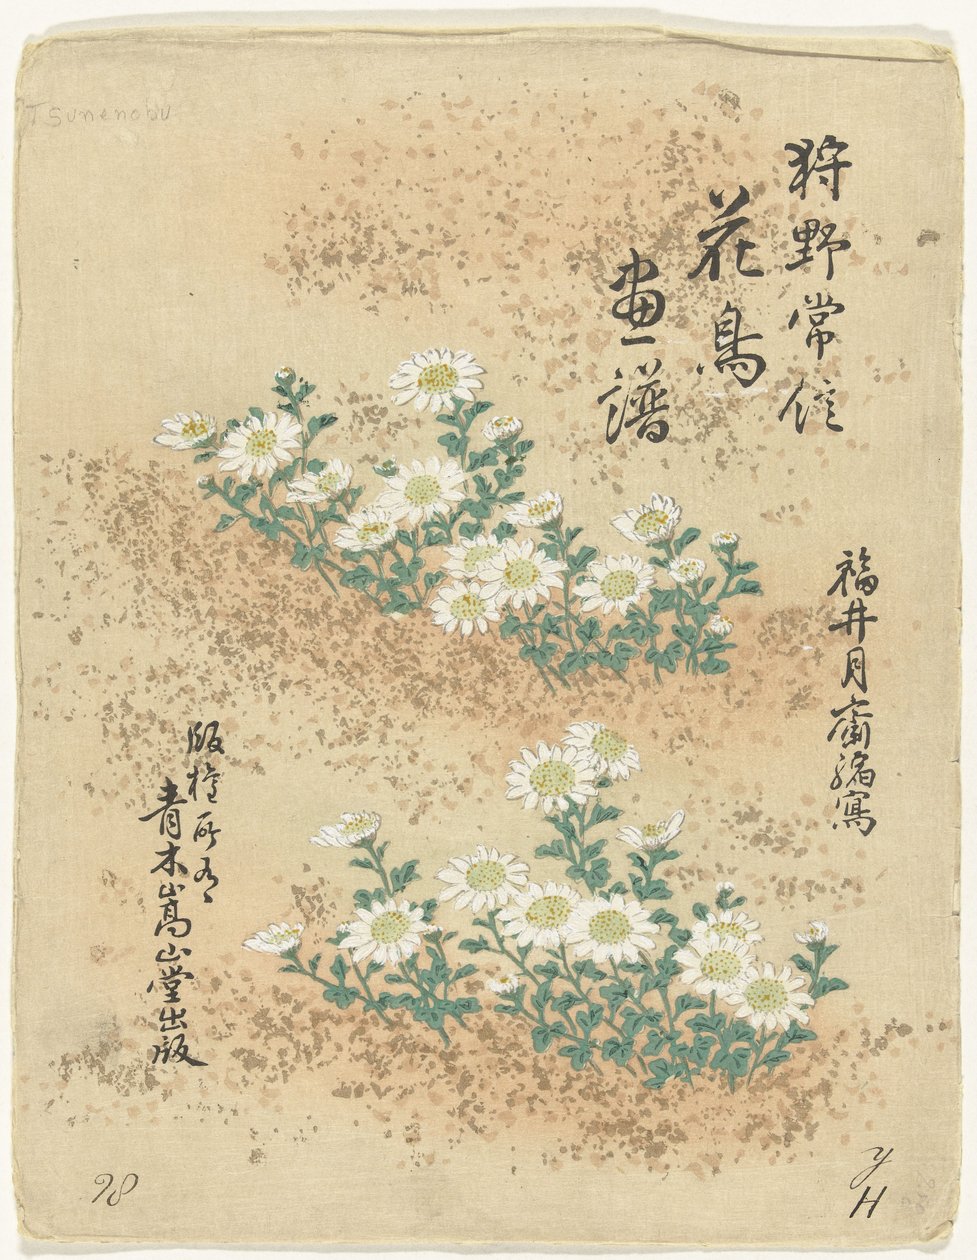 狩野常信
花鳥
畫譜
福井月齋編寫
版権所有
青木嵩山堂出版
Tsunenobu
98
y H